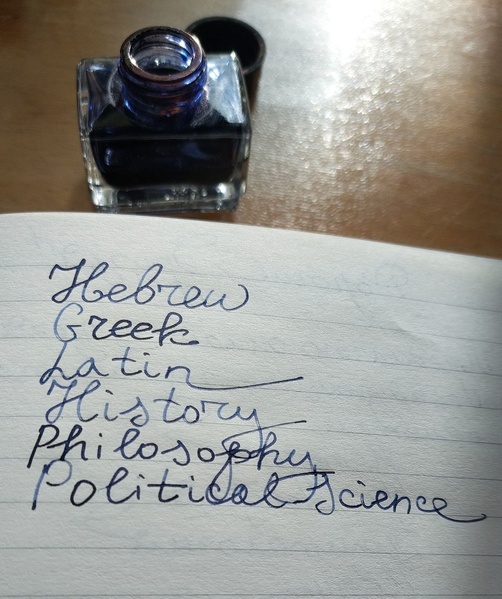 Hebrew
Greek
Latin
History
Philosophy
Political Science